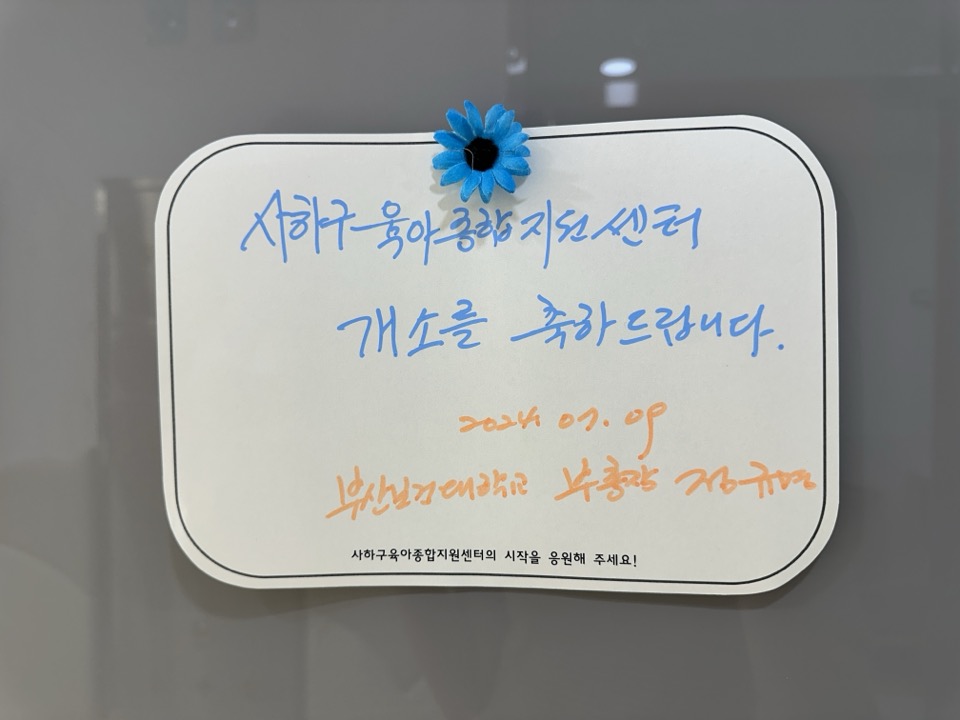 사하구육아종합지원센터
개소를 축하드립니다.
2024. 07. 09
부산보건대학교 부총장 정규명
사하구육아종합지원센터의 시작을 응원해 주세요!